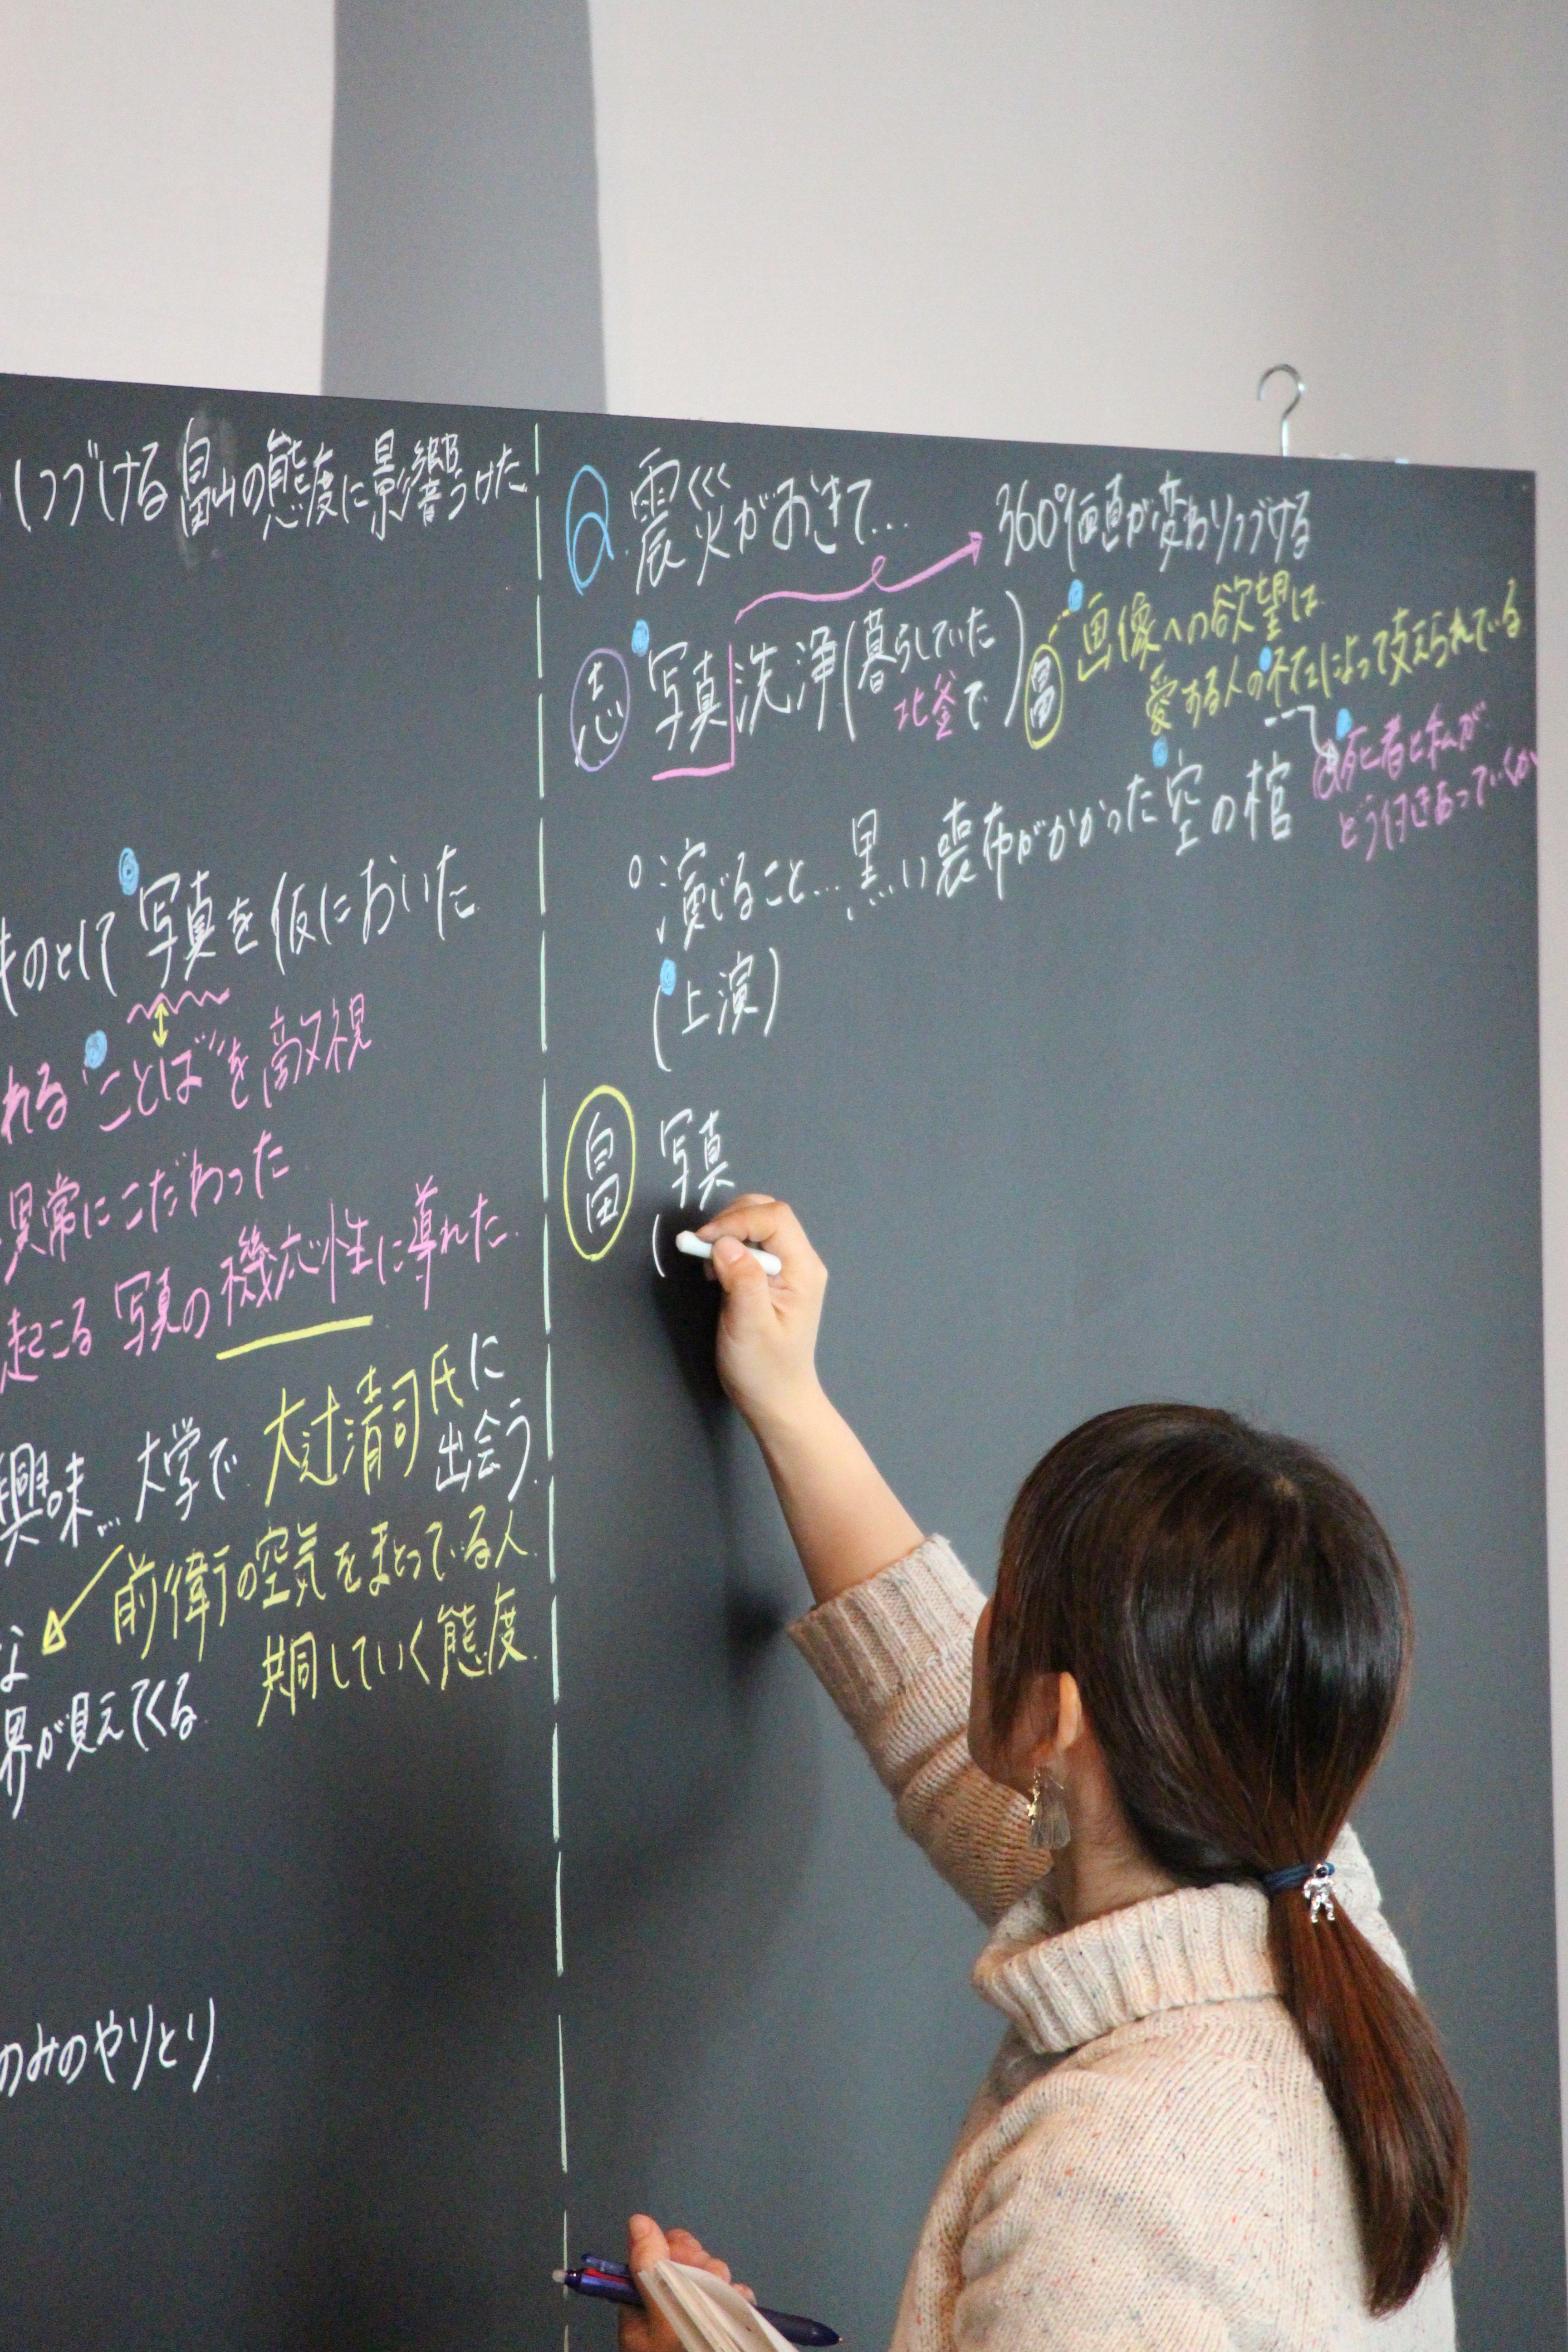 しつづける畠山の態度に影響うけた
ものとして写真を仮においた
れる"ことば"を敵視
異常にこだわった
起こる写真の機応性に導れた
興味… 大学で 大辻清司氏に
出会う
前衛の空気をまとっている人
共同していく態度
な
界が見えてくる
のみのやりとり
Q. 震災がおきて…
360°価値が変わりつづける
志 写真洗浄(暮らしていた
北釜で)
畠 画像への欲望は
愛する人の不在によって支えられている
死者と私が
どう付きあっていくか
○演じること…黒い喪布がかかった空の棺
(上演)
畠 写真
(